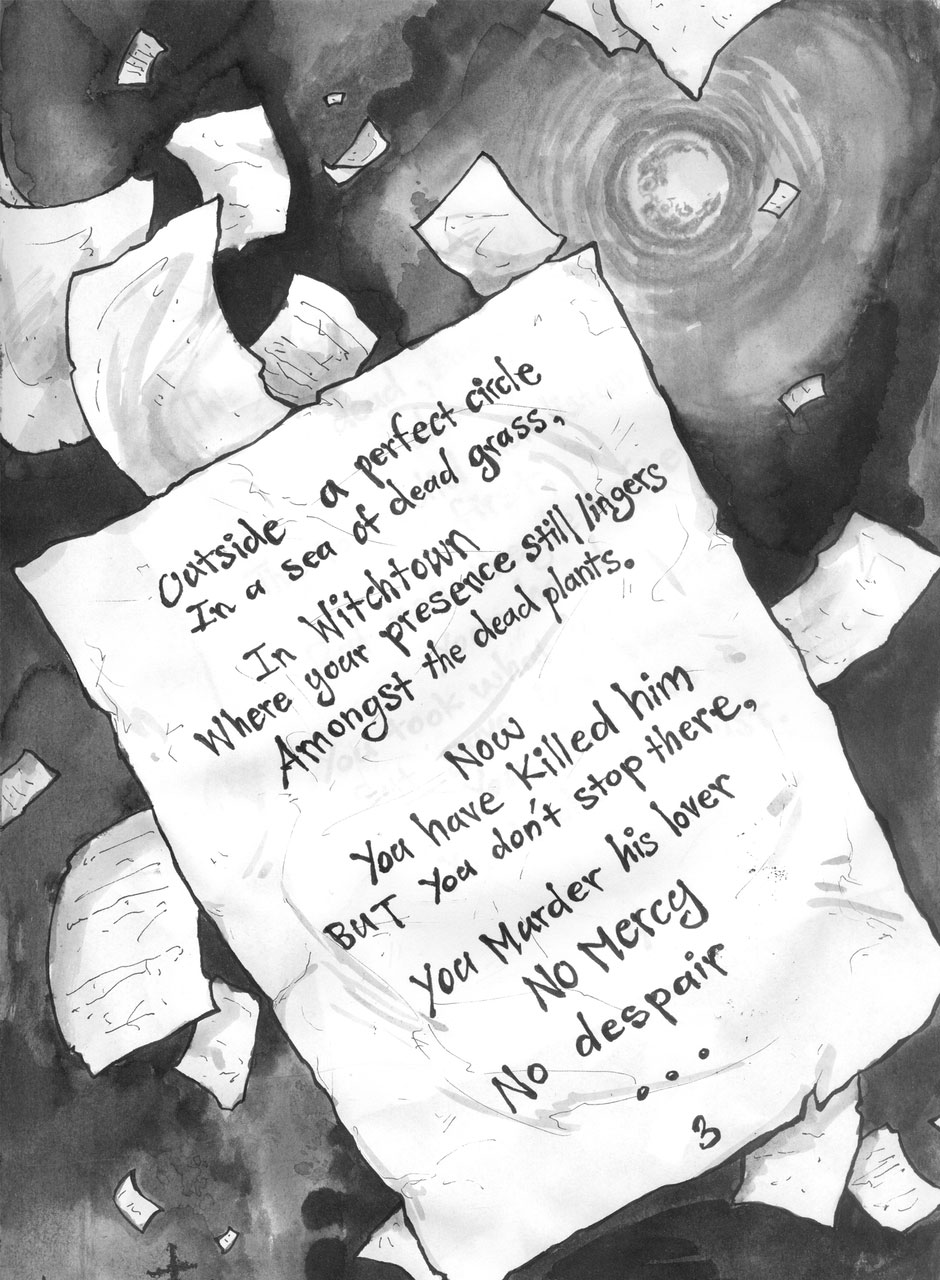 Outside a perfect circle
In a sea of dead grass,
In Witchtown
Where your presence still lingers
Amongst the dead plants.
Now
You have killed him
BUT You don't stop there,
You Murder his lover
No Mercy
No despair
...
3